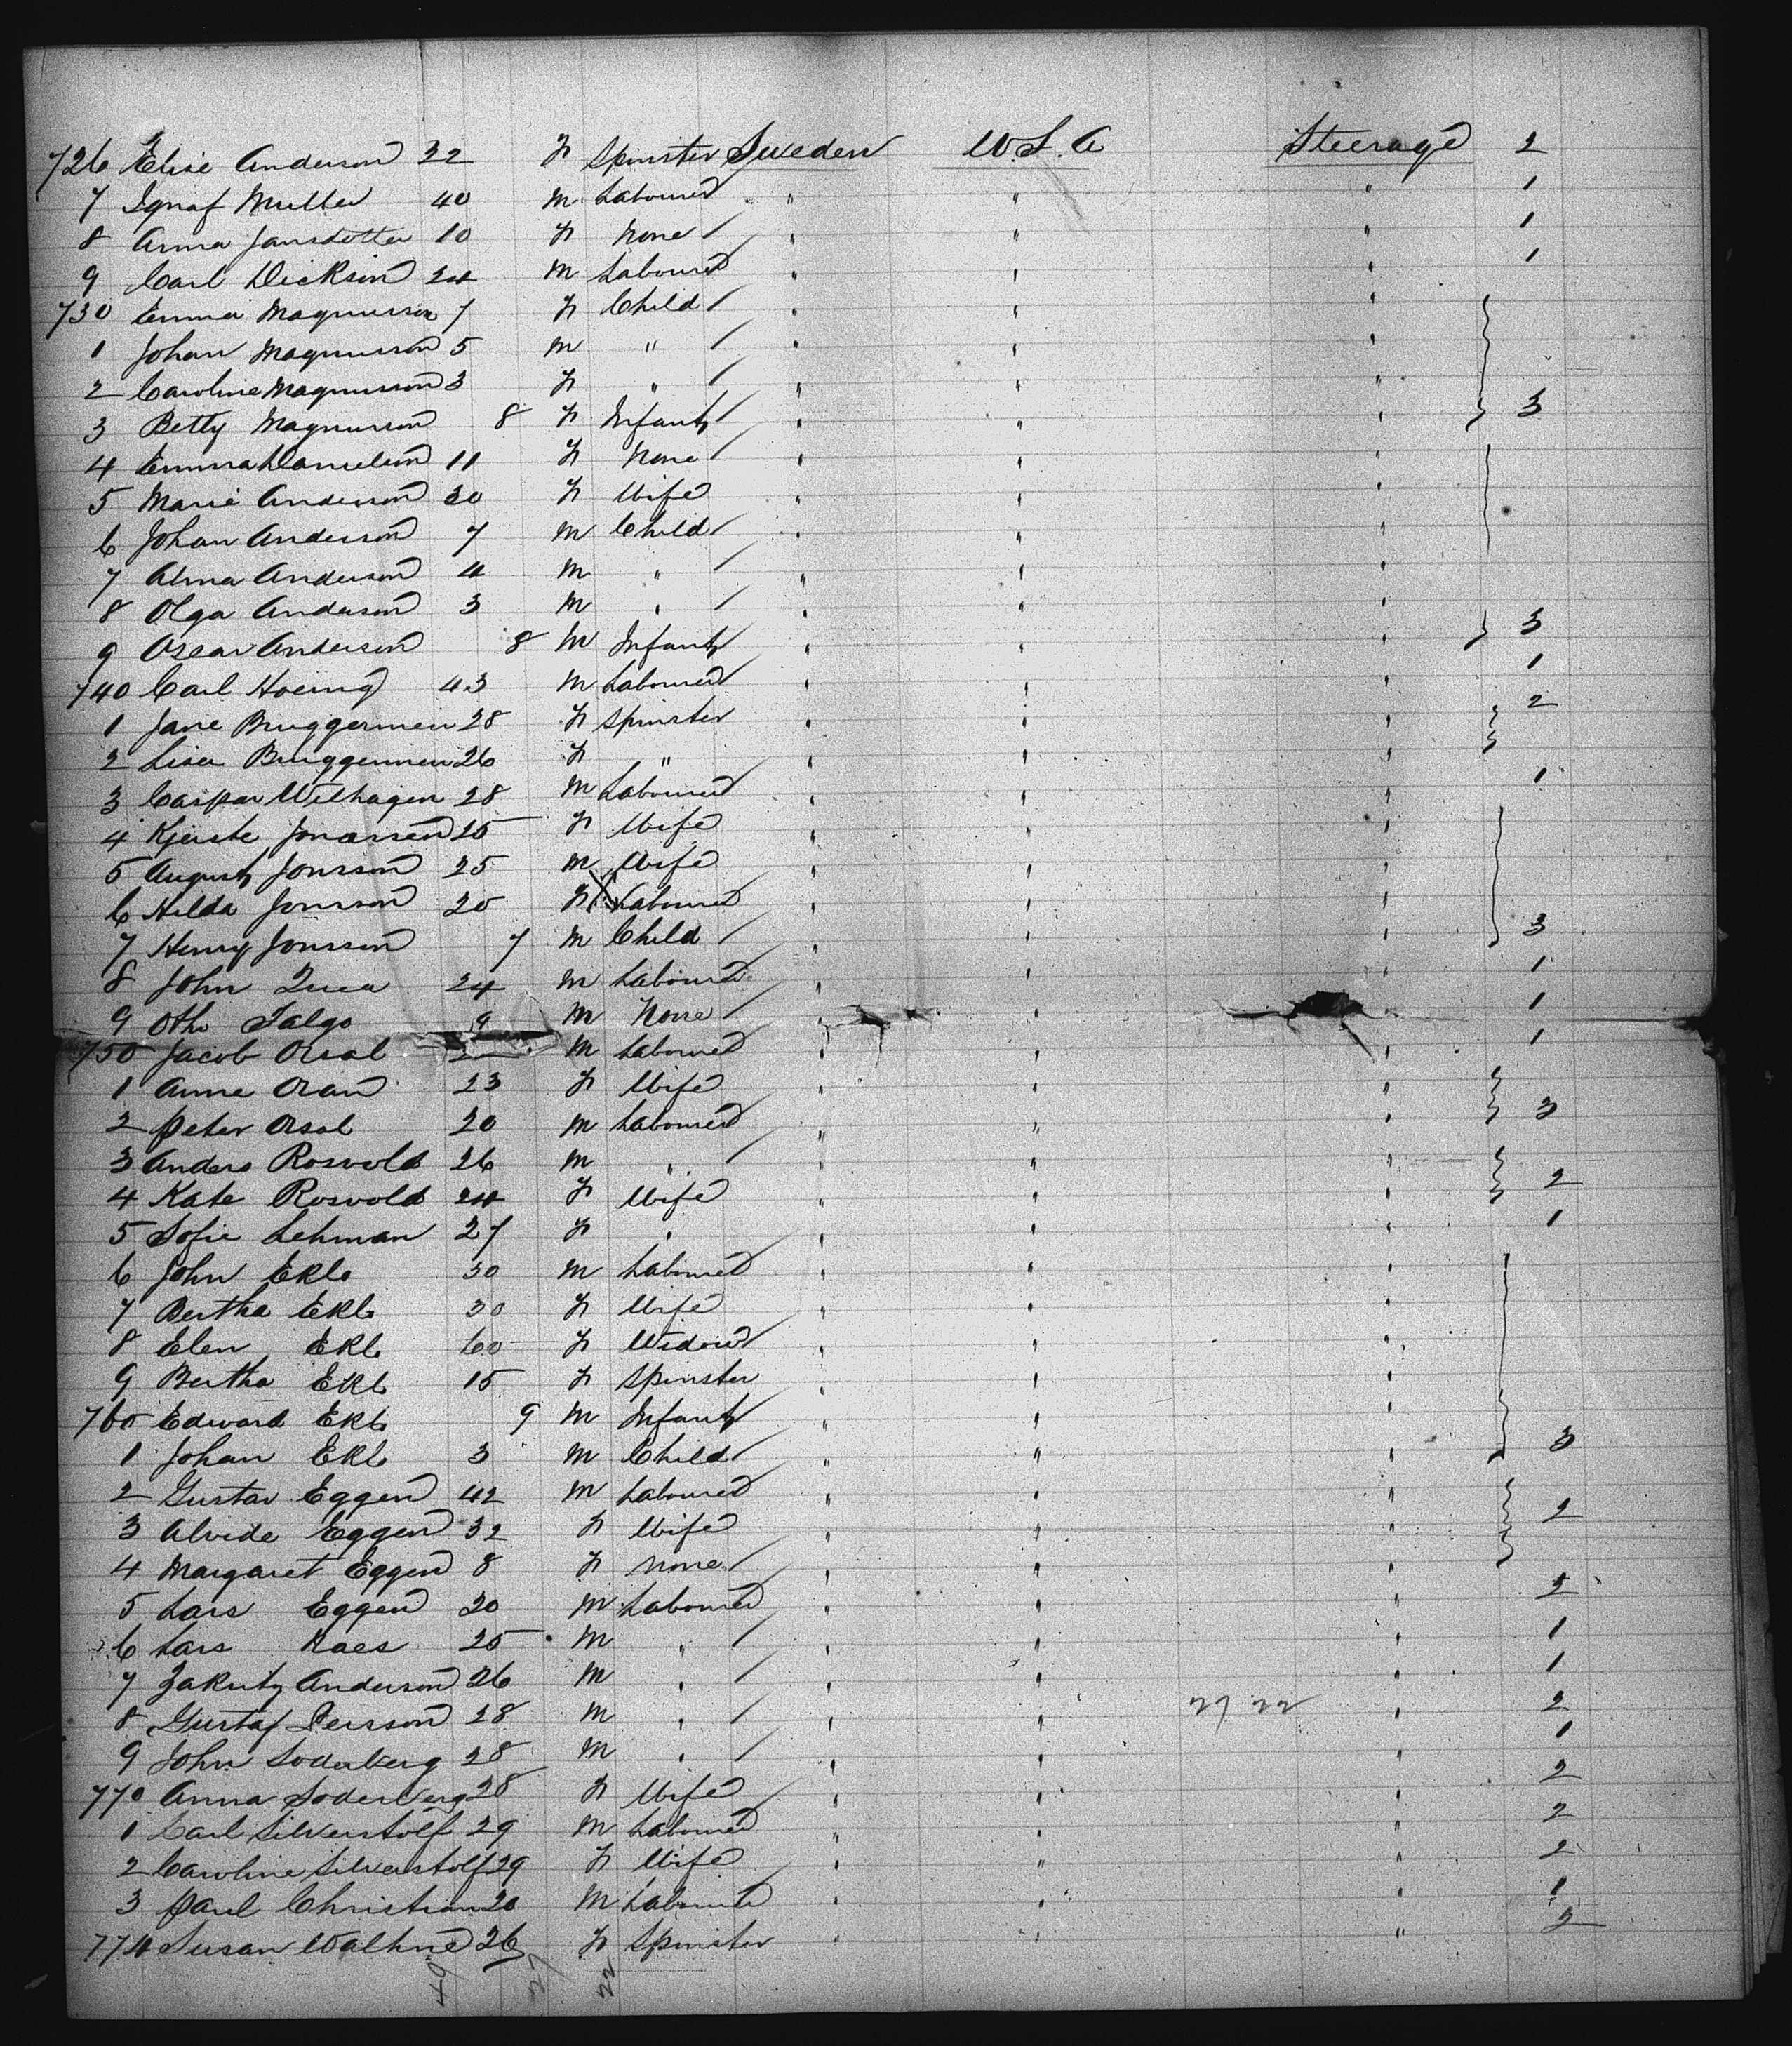 726 Elise Anderson 32 F Spinster Sweden U.S.A Steerage 2
7 Ignaf Muller 40 M Labourer " " " 1
8 Anna Jansdotter 10 F None " " " 1
9 Carl Dickson 24 M Labourer " " " 1
730 Emma Magnusson 7 F Child " " "
1 Johan Magnusson 5 M " " " "
2 Caroline Magnusson 3 F " " " "
3 Betty Magnusson 8 F Infant " " " 3
4 Emma Danielson 11 F None " " "
5 Marie Anderson 30 F Wife " " "
6 Johan Anderson 7 M Child " " "
7 Alma Anderson 4 M " " " "
8 Olga Anderson 3 M " " " "
9 Oscar Anderson 8 M Infant " " " 3
740 Carl Hoeing 43 M Labourer " " " 1
1 Jane Bruggermen 28 F Spinster " " " 2
2 Lisa Bruggermen 26 F " " " "
3 Caspar Wilhagen 28 M Labourer " " " 1
4 Kjerste Jonassen 25 F Wife " " "
5 August Jonsson 25 M Wife " " "
6 Hilda Jonsson 20 F X Labourer " " "
7 Henry Jonsson 7 M Child " " " 3
8 John 24 M Labourer " " " 1
9 Oth Talgo 9 M None " " " 1
750 Jacob Orsal M Labourer " " " 1
1 Anne Oran 23 F Wife " " "
2 Peter Orsal 20 M Labourer " " " 3
3 Anders Rosvold 26 M " " " "
4 Kate Rosvold 24 F Wife " " " 2
5 Sofie Lehman 27 F " " " " 1
6 John Eklo 30 M Labourer " " "
7 Bertha Eklo 30 F Wife " " "
8 Elen Eklo 60 F Widow " " "
9 Bertha Eklo 15 F Spinster " " "
760 Edward Eklo 9 M Infant " " "
1 Johan Eklo 3 M Child " " " 3
2 Gustav Eggen 42 M Labourer " " " 2
3 Alvide Eggen 32 F Wife " " "
4 Margaret Eggen 8 F None " " "
5 Lars Eggen 20 M Labourer " " " 2
6 Lars Naes 25 M " " " " 1
7 Anderson 26 M " " " " 1
8 Gustaf Persson 28 M " " 27 22 " 2
9 John Soderberg 28 M " " " " 1
770 Anna Soderberg 28 F Wife " " " 2
1 Carl Silverstolf 29 M Labourer " " " 2
2 Caroline Silverstolf 29 F Wife " " " 2
3 Paul Christian 20 M Labourer " " " 1
774 Susan Walhne 26 F Spinster " " " 2
49 27 22